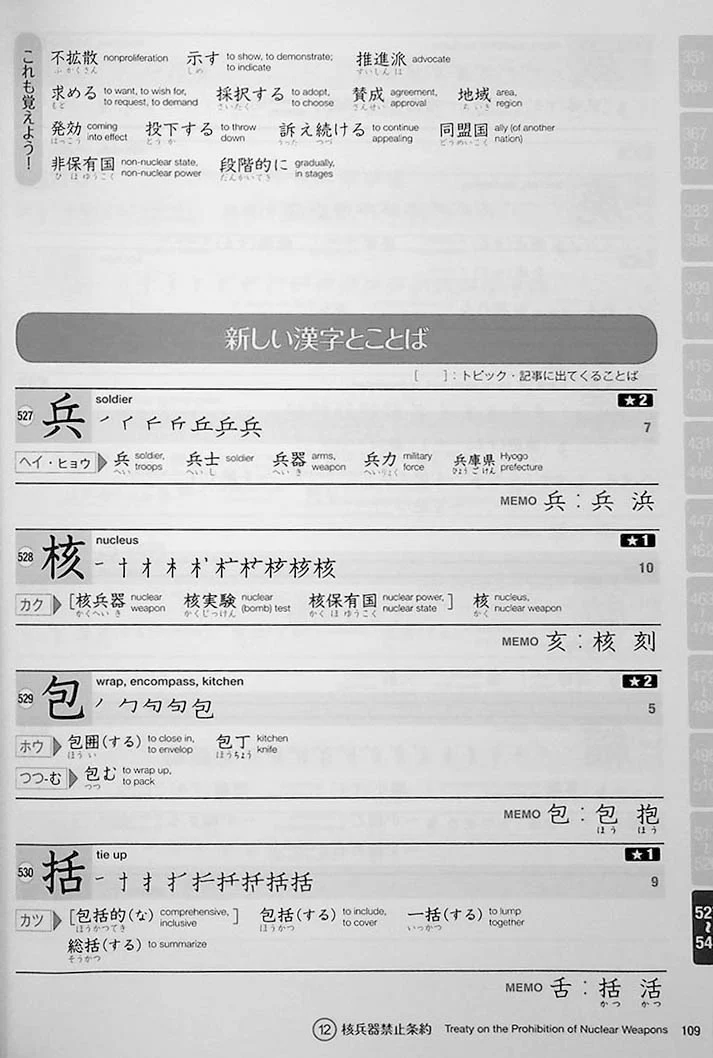 これも覚えよう！
不拡散 nonproliferation 示す to show, to demonstrate; to indicate 推進派 advocate
ふかくさん しめ すいしんは
求める to want, to wish for, to request, to demand 採択する to adopt, to choose 賛成 agreement, approval 地域 area, region
もと さいたく さんせい ちいき
発効 coming into effect 投下する to throw down 訴え続ける to continue appealing 同盟国 ally (of another nation)
はっこう とうか うった つづ どうめいこく
非保有国 non-nuclear state, non-nuclear power 段階的に gradually, in stages
ひほゆうこく だんかいてき
新しい漢字とことば
[ ]：トピック・記事に出てくることば
527 兵 soldier ★2
ノ イ 兵 7
ヘイ・ヒョウ 兵 soldier, troops 兵士 soldier 兵器 arms, weapon 兵力 military force 兵庫県 Hyogo prefecture
へい へいし へいき へいりょく ひょうごけん
MEMO 兵：兵 浜
528 核 nucleus ★1
一 十 オ 木 核 核 10
カク [核兵器 nuclear weapon 核実験 nuclear (bomb) test 核保有国 nuclear power, nuclear state ] 核 nucleus, nuclear weapon
かくへいき かくじっけん かくほゆうこく かく
MEMO 亥：核 刻
529 包 wrap, encompass, kitchen ★2
ノ 勹 勺 句 包 5
ホウ 包囲(する) to close in, to envelop 包丁 kitchen knife
ほうい ほうちょう
つつ-む 包む to wrap up, to pack
つつ
MEMO 包：包 抱
ほう ほう
530 括 tie up ★1
一 十 扌 括 括 9
カツ [包括的(な) comprehensive, inclusive ] 包括(する) to include, to cover 一括(する) to lump together
ほうかつてき ほうかつ いっかつ
総括(する) to summarize
そうかつ
MEMO 舌：括 活
かつ かつ
⑫ 核兵器禁止条約 Treaty on the Prohibition of Nuclear Weapons 109
351 ~ 366
367 ~ 382
383 ~ 398
399 ~ 414
415 ~ 430
431 ~ 446
447 ~ 462
463 ~ 478
479 ~ 494
52 ~ 54